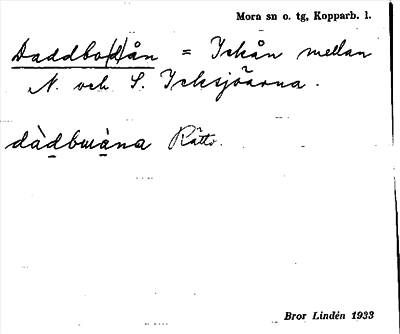 Mora sn o. tg, Kopparb. l.
Daddbo(d)ån = Ickån mellan
N. och S. Icksjöarna.
dàdbωàna Rättv.
Bror Lindén 1933